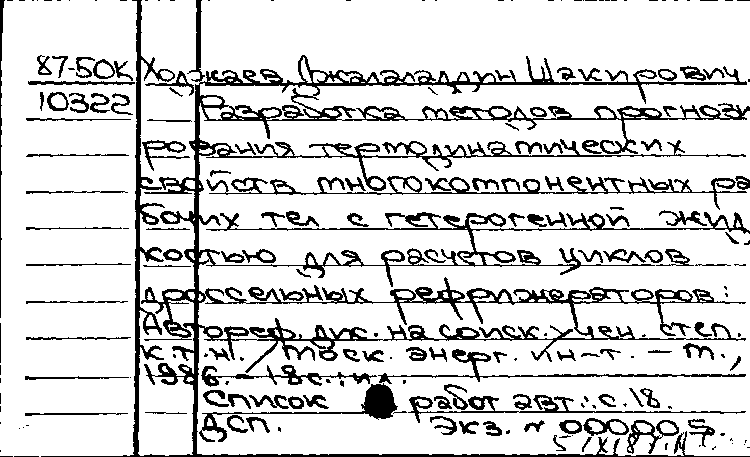 87-50К Ходжаев, Джалаладдин Шакирович.
10322 Разработка методов прогнози
рования термодинамических
свойств многокомпонентных ра
бочих тел с гетерогенной жид
костью для расчетов циклов
дроссельных рефрижераторов:
Автореф. дис. на соиск. учен. степ.
к.т.н. / Моск. энерг. ин-т. - М.,
1986. - 18 с.: ил.
Список работ авт.: с. 18.
ДСП. Экз. № 000005